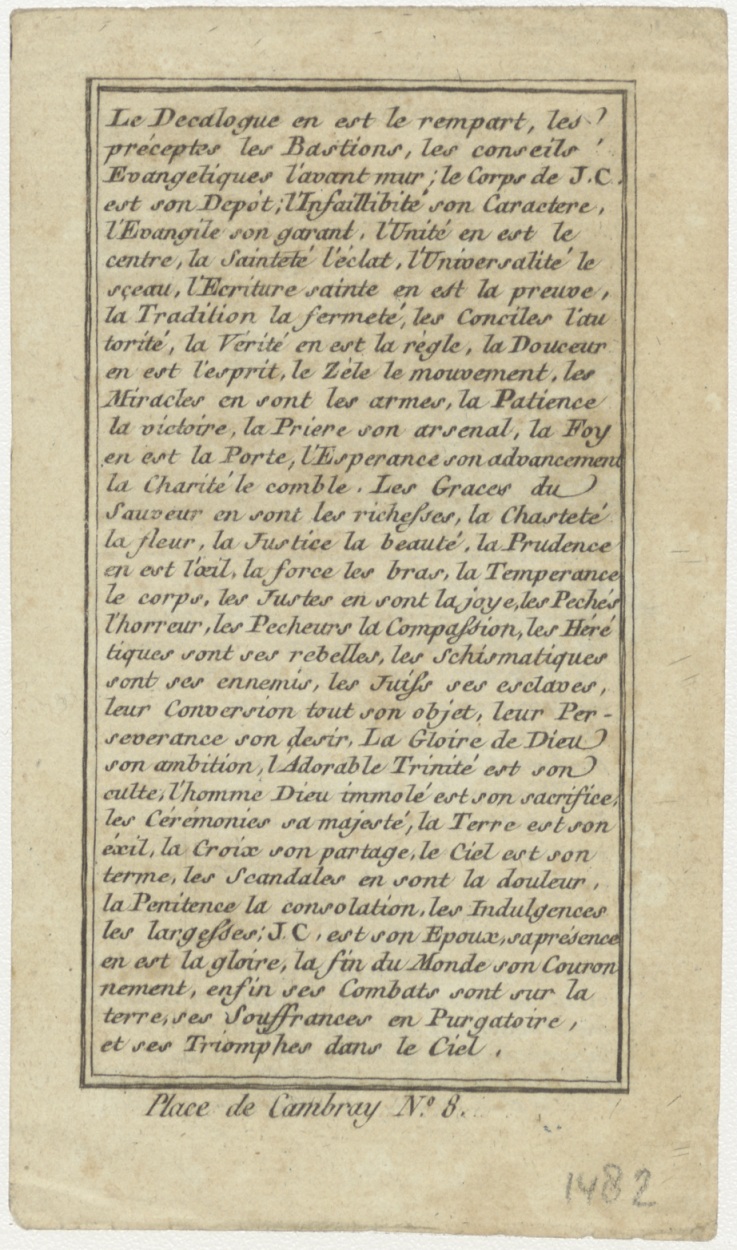 Le Decalogue en est le rempart, les
préceptes les Bastions, les conseils
Evangeliques l'avant mur; le Corps de J.C.
est son Depôt; l'Infaillibité son Caractere,
l'Evangile son garant, l'Unité en est le
centre, la Sainteté l'éclat, l'Universalité le
sçeau, l'Ecriture sainte en est la preuve,
la Tradition la fermeté, les Conciles l'au
torité, la Vérité en est la règle, la Douceur
en est l'esprit, le Zéle le mouvement, les
Miracles en sont les armes, la Patience
la victoire, la Priere son arsenal, la Foy
en est la Porte, l'Esperance son advancement
la Charité le comble. Les Graces du
Sauveur en sont les richesses, la Chasteté
la fleur, la Justice la beauté, la Prudence
en est l'œil, la force les bras, la Temperance
le corps, les Justes en sont la joye, les Pechés
l'horreur, les Pecheurs la Compassion, les Héré
tiques sont ses rebelles, les Schismatiques
sont ses ennemis, les Juifs ses esclaves,
leur Conversion tout son objet, leur Per-
severance son desir, La Gloire de Dieu
son ambition, l'Adorable Trinité est son
culte, l'homme Dieu immolé est son sacrifice,
les Cérémonies sa majesté, la Terre est son
éxil, la Croix son partage, le Ciel est son
terme, les Scandales en sont la douleur,
la Penitence la consolation, les Indulgences
les largesses; J.C. est son Epoux, sa présence
en est la gloire, la fin du Monde son Couron
nement, enfin ses Combats sont sur la
terre, ses Souffrances en Purgatoire,
et ses Triomphes dans le Ciel.
Place de Cambray N.º 8.
1482